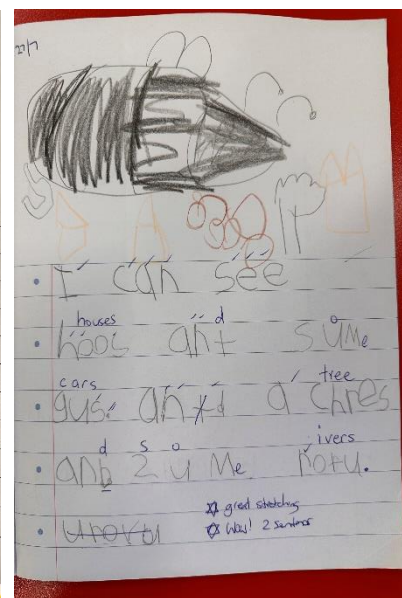 27/7
I can see
houses d o
hoos ant sume
cars tree
gus. antd a chres
d s o ivers
anb 2 u me rotu.
great stretching
Wow! 2 sentences